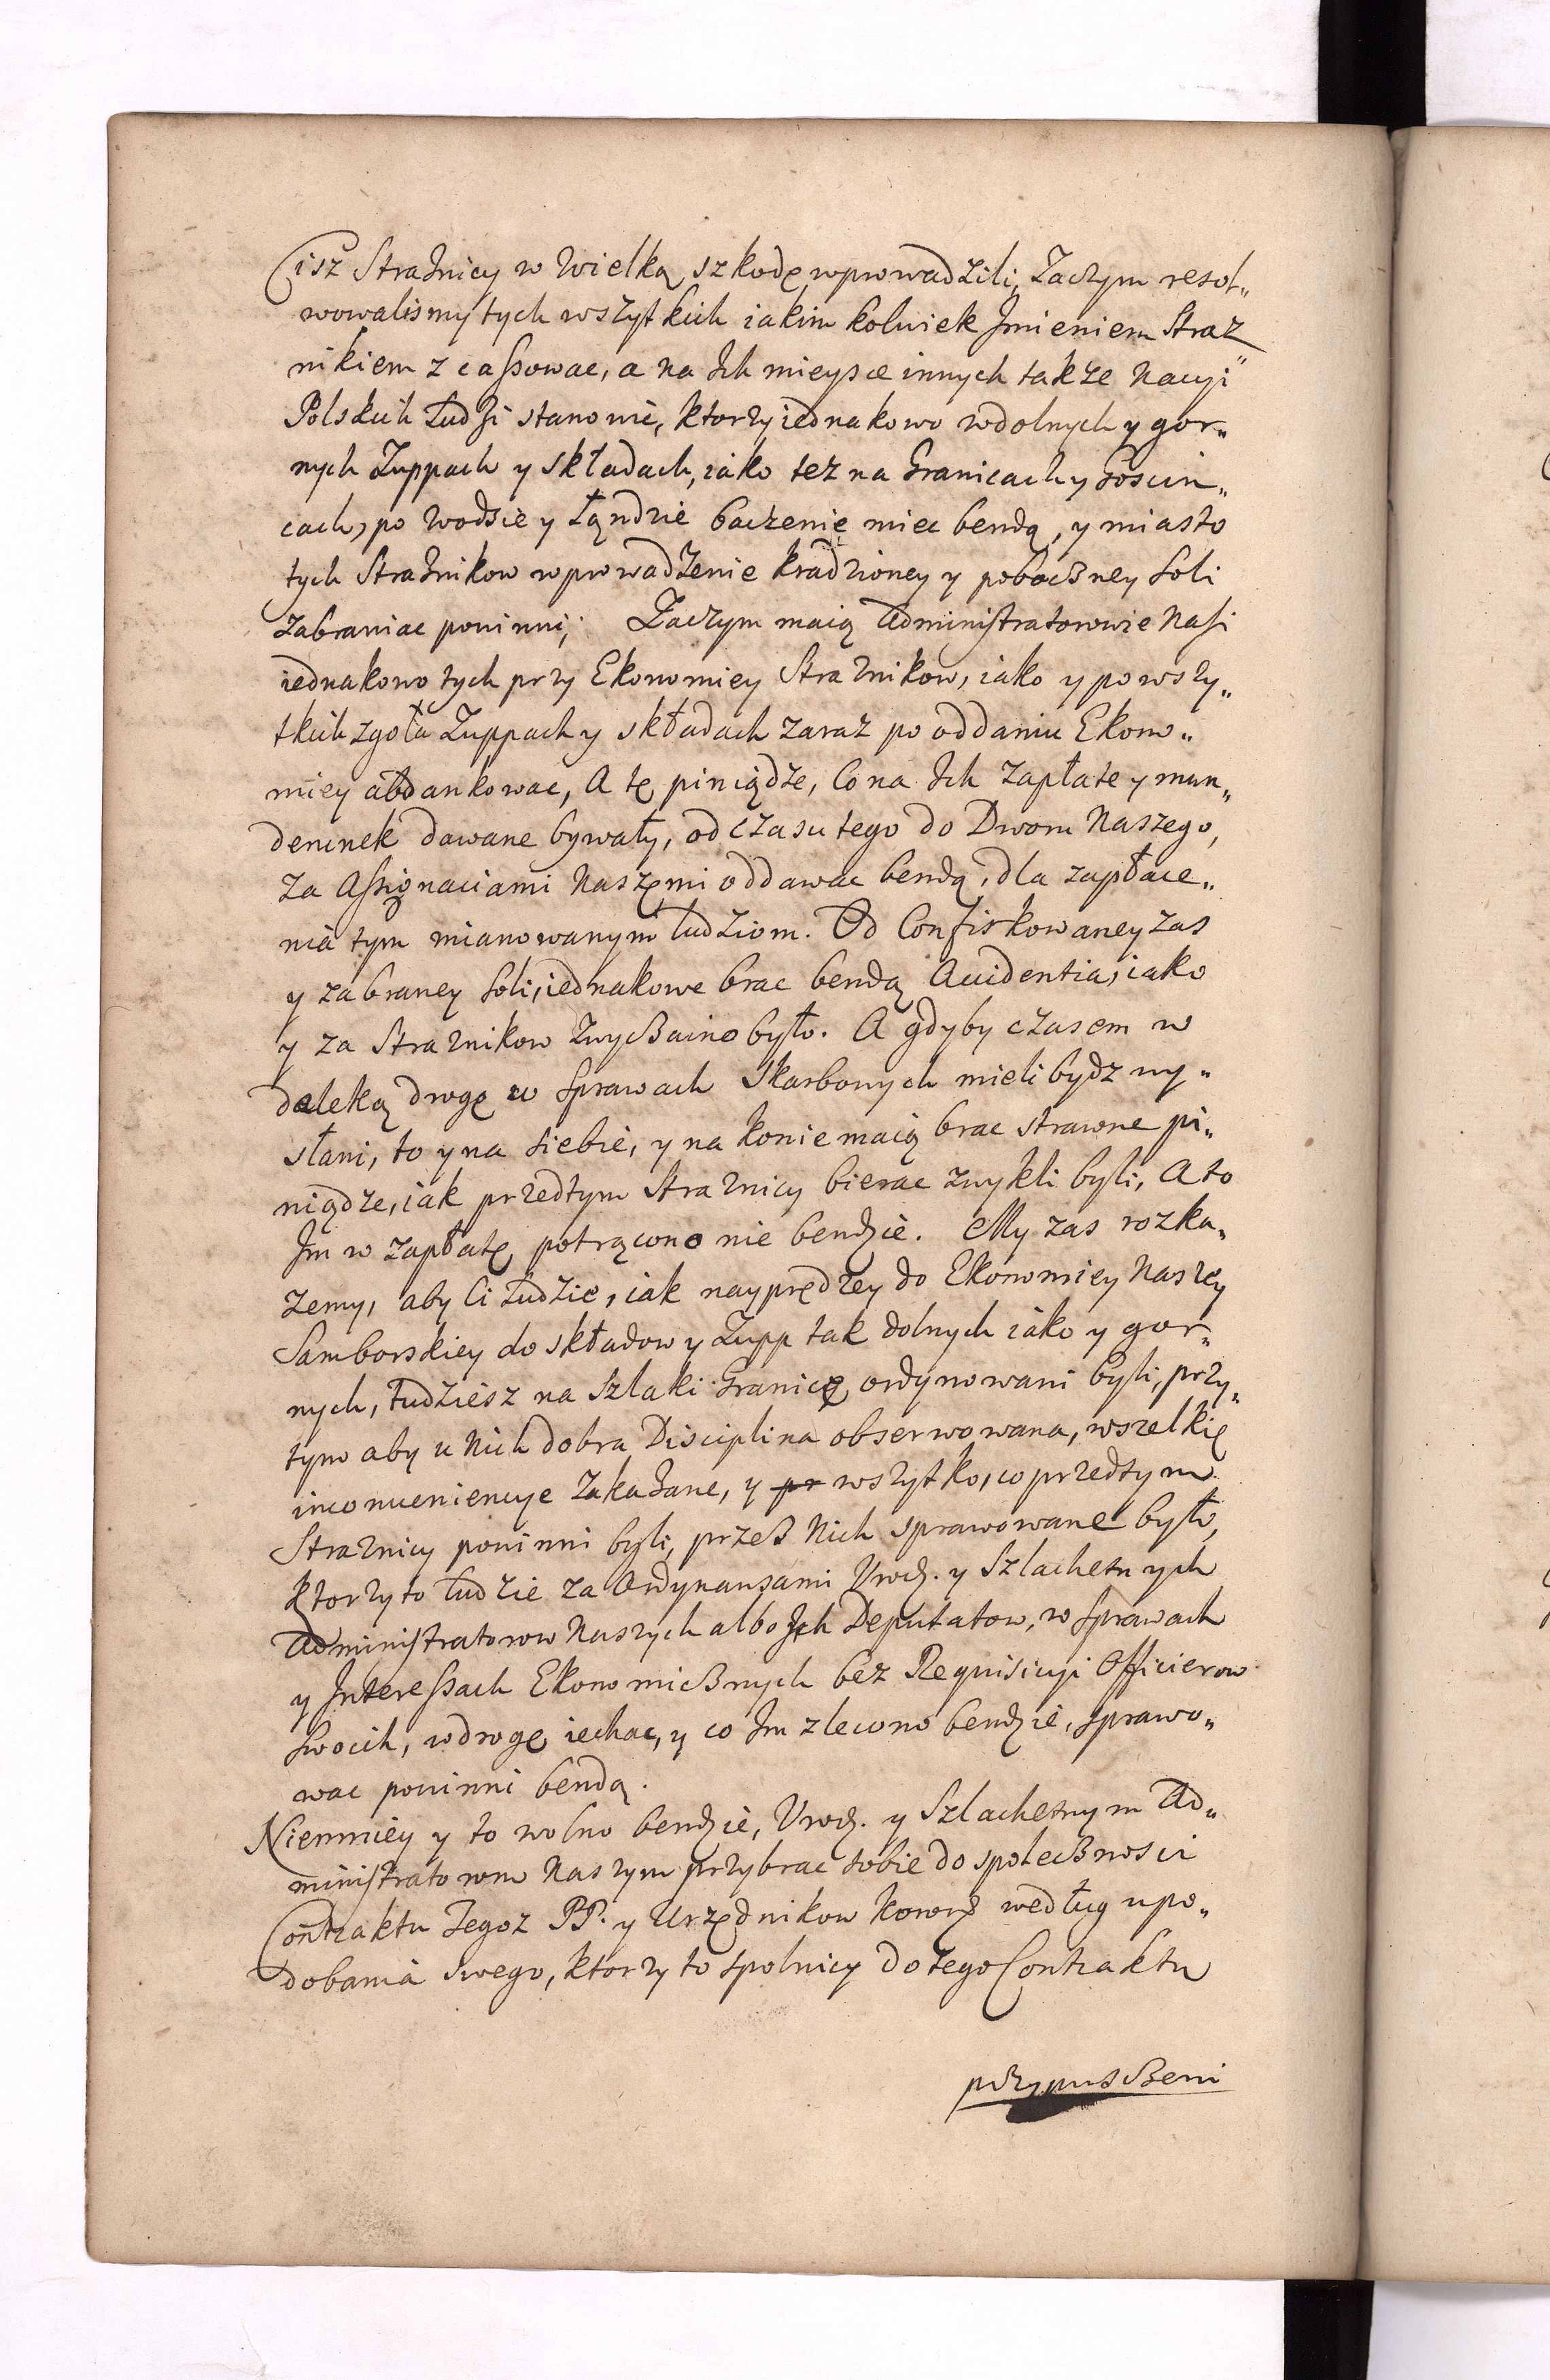 Cisz Strażnicy w Wielką szkodę wprowadzili; Zaczym resol„
wowalismy tych wszytkich iakim kolwiek Jmieniem Straż„
nikiem z cassowac, a na Jch mieysce innych także Nacyi
Polskich Ludzi stanowic, ktorzy iednakowo w dolnych y gor„
nych Zuppach y składach, iako tez na Granicach y Goscin„
cach, po Wodzie y Ląndzie baczenię miec bendą, y miasto
tych Strażnikow wprowadzenie kradzioney y poboczney Soli
zabraniac powinni; Zaczym maią Administratorowie Nasi
iednakowo tych przy Ekonomiey Straznikow, iako y po wszy„
tkich zgoła Zuppach y składach zaraz po oddaniu Ekono„
miey abdankowac, A tę piniądze, Co na Jch zapłate y mun„
derunek dawane bywały, od czasu tego do Dworu Naszego,
za Assignaciami Naszęmi oddawac bendą, dla zapłace„
nia tym mianowanym ludziom. Od Confiskowaney zas
y zabraney Soli, iednakowe brac bendą Accidentia, iako
y za Straznikow zwyczaino było. A gdyby czasem w
daleką drogę w Sprawach Skarbowych mieli bydz wy„
słani, to y na siebie, y na konie maią brac strawne pi„
niądze, iak przedtym Straznicy bierac zwykli byli, A to
Jm w zapłatę potrącono nie bendzie. My zas rozka„
zemy, aby Ci Ludzie, iak nayprędzey do Ekonomiey Naszey
Samborskiey do składow y Zupp tak dolnych iako y gor„
nych, tudziesz na Szlaki Granicę ordynowani byli, przy„
tym aby u Nich dobra Disciplina obserwowana, wszelkię
inconueniencye zakazane, y pr wszytko, co przedtym
Straznicy powinni byli, przez Nich sprawowane było,
ktorzy to ludzie za Ordynansami Urodz. y Szlachetnych
Administratorow Naszych albo Jch Deputatow, w Sprawach
y Jnteressach Ekonomicznych bez Requisicyi Officierow
Swoich, w drogę iechac, y co Jm zlecono bendzie, sprawo„
wac powinni bendą.
Niemniey y to wolno bendzie, Urodz. y Szlachetnym Ad„
ministratorom Naszym przybrac sobie do społecznosci
Contraktu Tegoz PP. y Urzędnikow według upo„
dobania swego, ktorzy to spolnicy do tego Contraktu
przypuszczeni